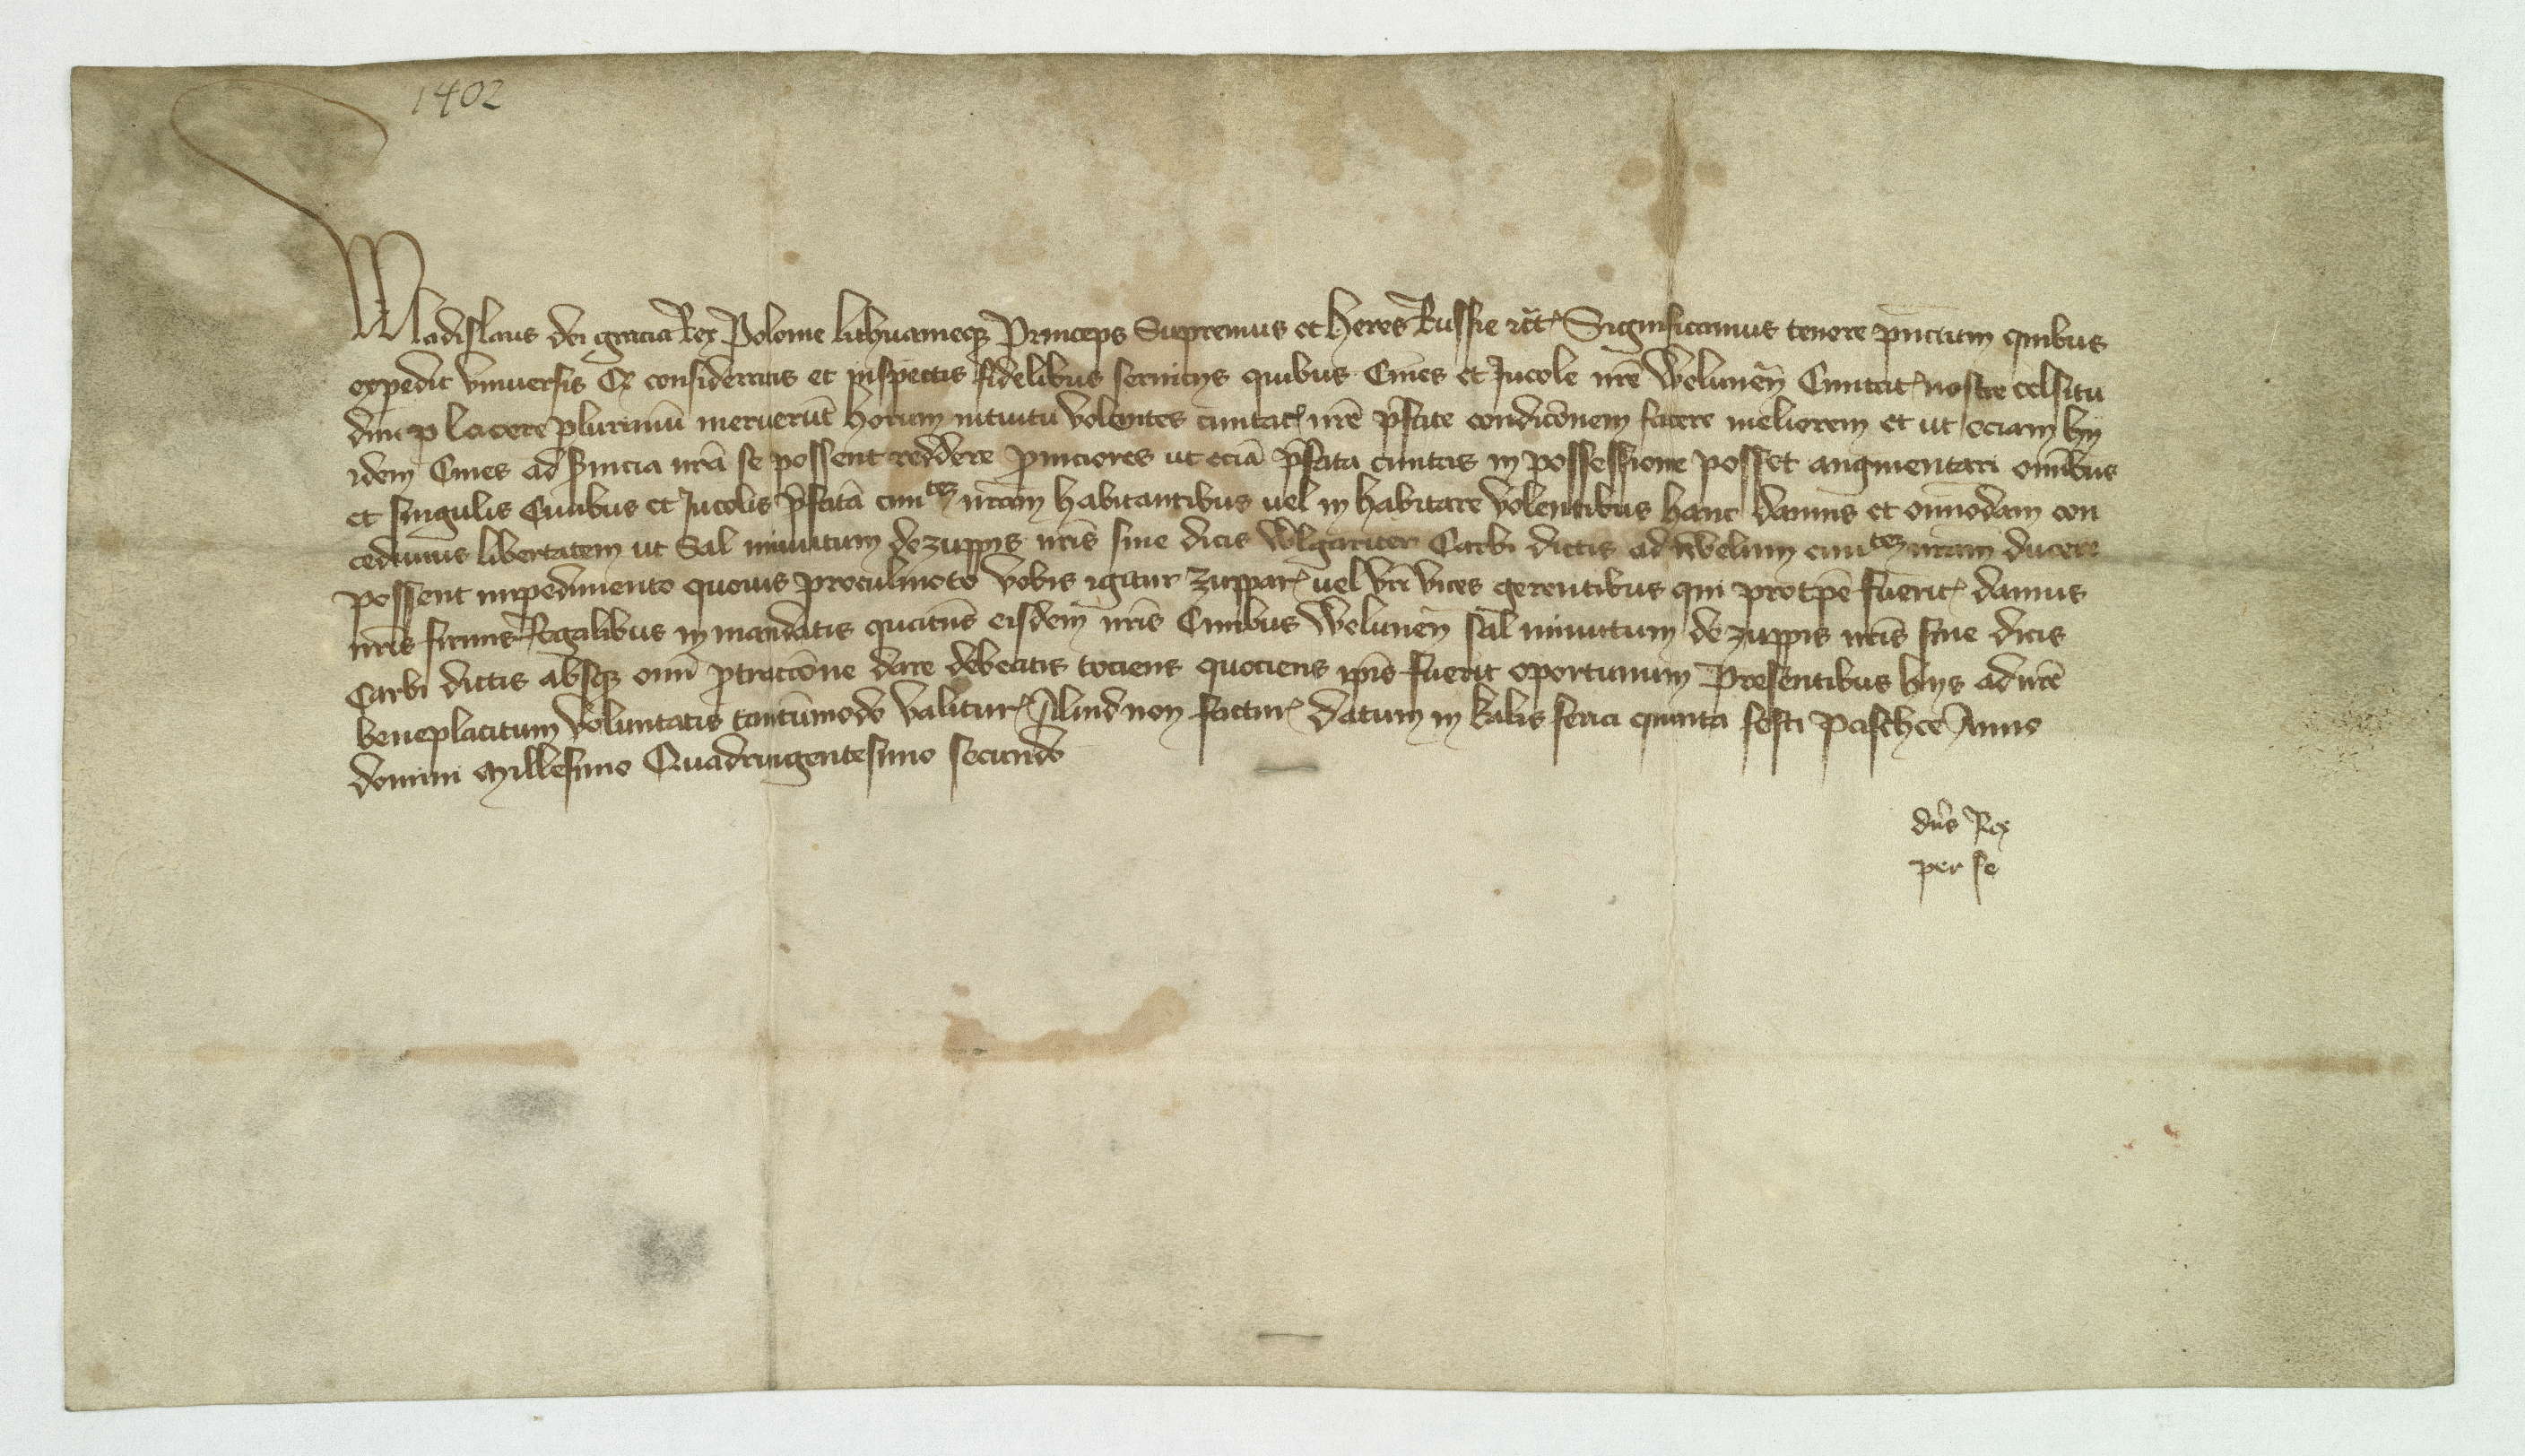 1402
Wladislaus dei gracia Rex Polonie lithuanieq3 Princeps Supremus et heres Russie etc̃ Significamus tenore pñcium quibus
expedit vniuersis Qr consideratis et inspectis fidelibus seruicys quibus Ciues et Incole nr̃e Weluneñ Ciuitat nostre celsitu
dini placere plurimũ meruerũt horum intuitu volentes ciuitat nr̃e p̃fate condic̃onem facere meliorem et ut eciam hy
idem Ciues ad s̃uicia nr̃a se possent reddere p̃nciores ut eciã p̃fata ciuitas in possessione posset augmentari om̃ibus
et singulis Ciuibus et Incolis p̃fatã ciuitez nr̃am habitantibus uel in habitare volentibus hanc damus et om̃imodam con
cedimus libertatem ut Sal minutum de zuppis nr̃is siue dicis Wlgariter Carbi dictis ad Welun ciuitez nr̃am ducere
possent impedimento quouis proculmoto vobis igitur zuppar uel vr̃i vices gerentibus qui pro tp̃e fuerit damus
nr̃is firmis Regalibus in mandatis quatin̄s eisdem nr̃is Ciuibus Weluneñ sal minutum de zuppis nr̃is siue dicis
Carbi dictis absq3 om̃i p̃traccõne dare debeatis tociens quociens ip̃is fuerit oportunum Presentibus hys ad nr̃e
beneplacitum voluntatis tantũmodo valitur Aliud non factur Datum in kalis feria quinta festi pasche Anno
domini Millesimo Quadringentesimo secundo
dñs Rex
per se